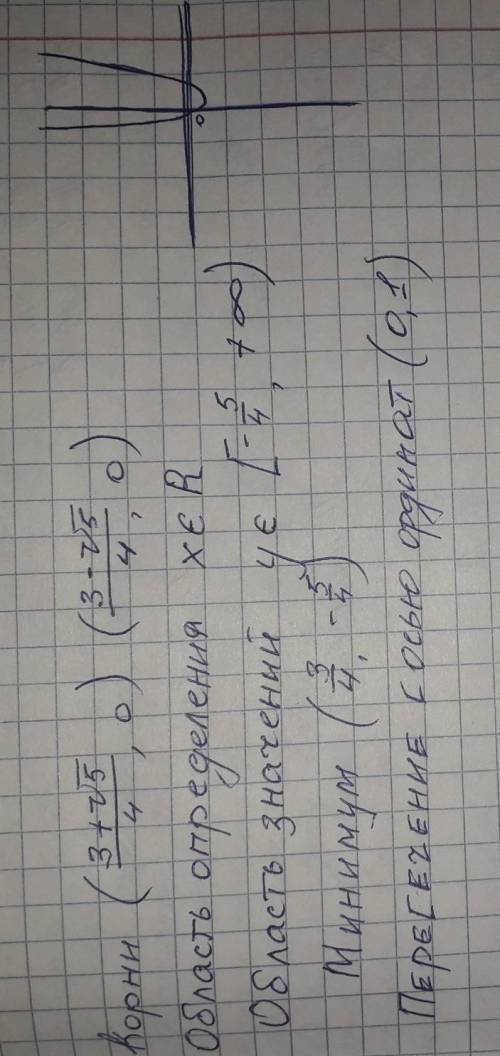 Корни (3+√5/4, 0) (3-√5/4, 0)
Область определения x∈R
Область значений y∈[-5/4, +∞)
Минимум (3/4, -5/4)
Пересечение с осью ординат (0,1)
0